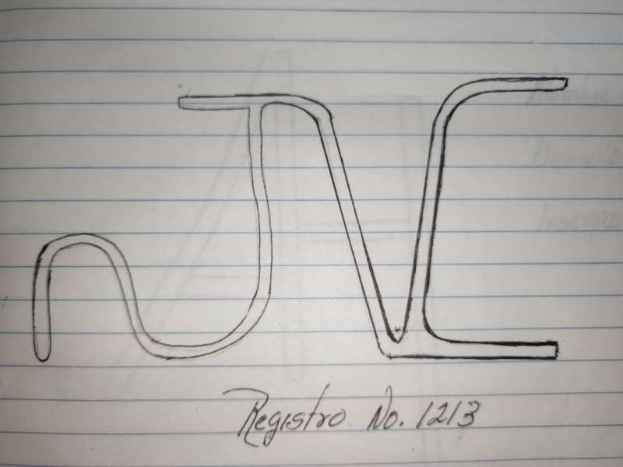 JVC
Registro No. 1213